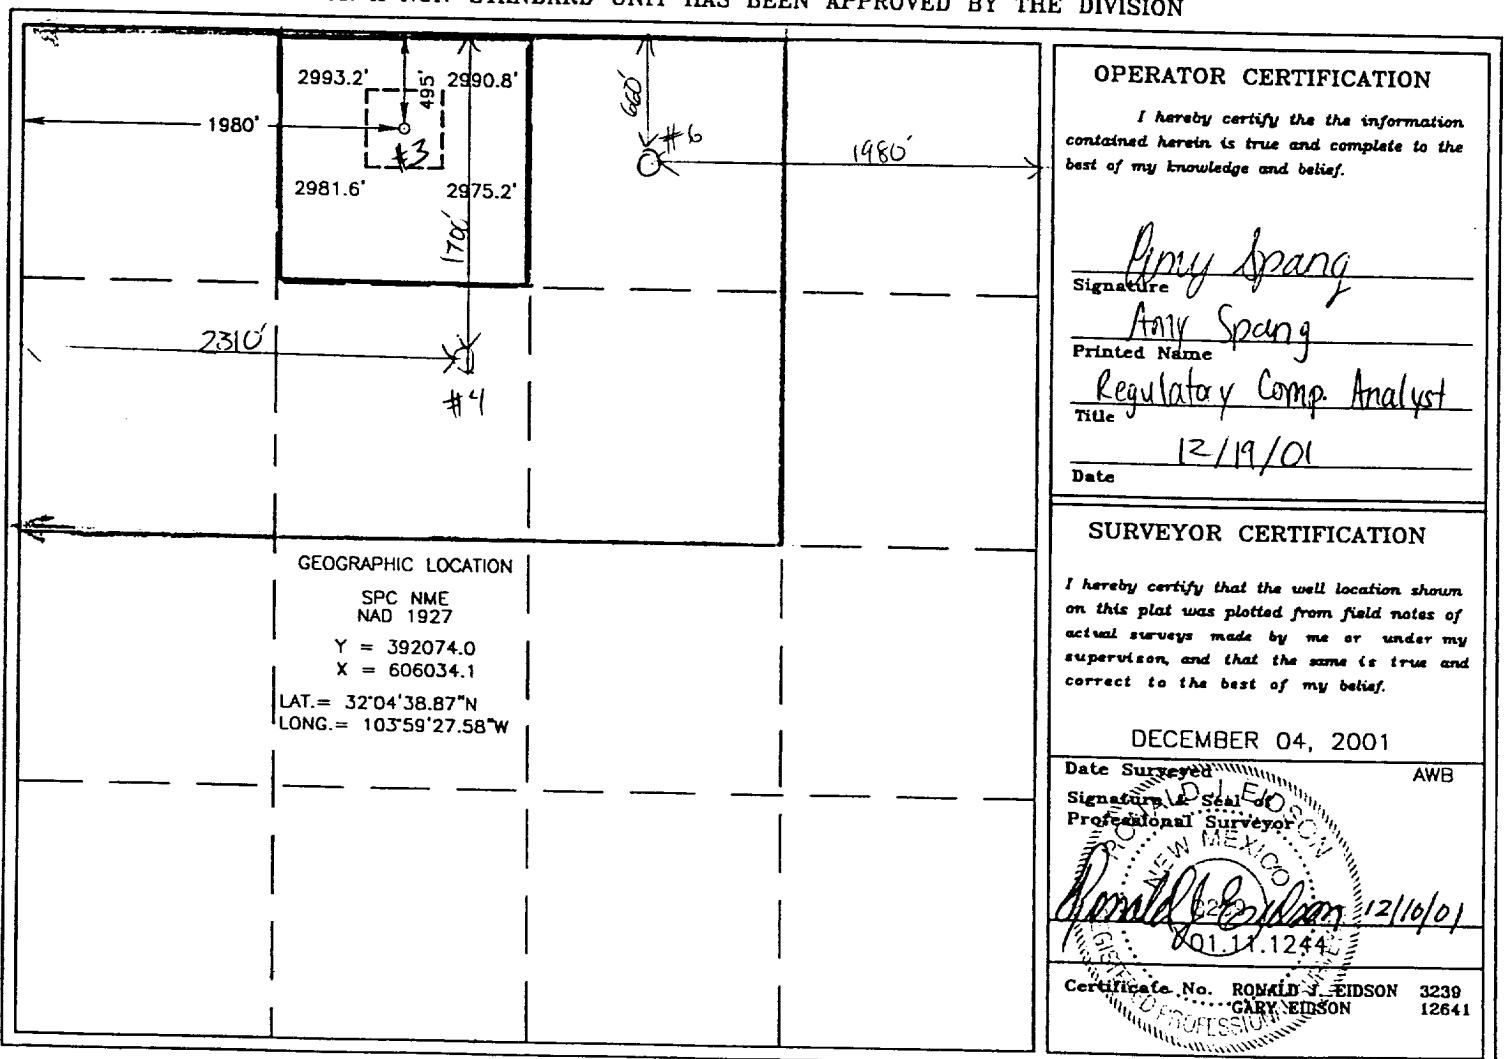 NON STANDARD UNIT HAS BEEN APPROVED BY THE DIVISION
2993.2' 495' 2990.8'
1980'
#3
2981.6' 2975.2'
1700'
660'
#6
1980'
2310'
#4
GEOGRAPHIC LOCATION
SPC NME
NAD 1927
Y = 392074.0
X = 606034.1
LAT.= 32°04'38.87"N
LONG.= 103°59'27.58"W
OPERATOR CERTIFICATION
I hereby certify the the information
contained herein is true and complete to the
best of my knowledge and belief.
Amy Spang
Signature
Amy Spang
Printed Name
Regulatory Comp. Analyst
Title
12/19/01
Date
SURVEYOR CERTIFICATION
I hereby certify that the well location shown
on this plat was plotted from field notes of
actual surveys made by me or under my
supervison, and that the same is true and
correct to the best of my belief.
DECEMBER 04, 2001
Date Surveyed AWB
Signature & Seal of
Professional Surveyor
RONALD J. EIDSON
NEW MEXICO
3239
REGISTERED PROFESSIONAL SURVEYOR
Ronald J Eidson 12/10/01
01.11.1244
Certificate No. RONALD J. EIDSON 3239
GARY EIDSON 12641